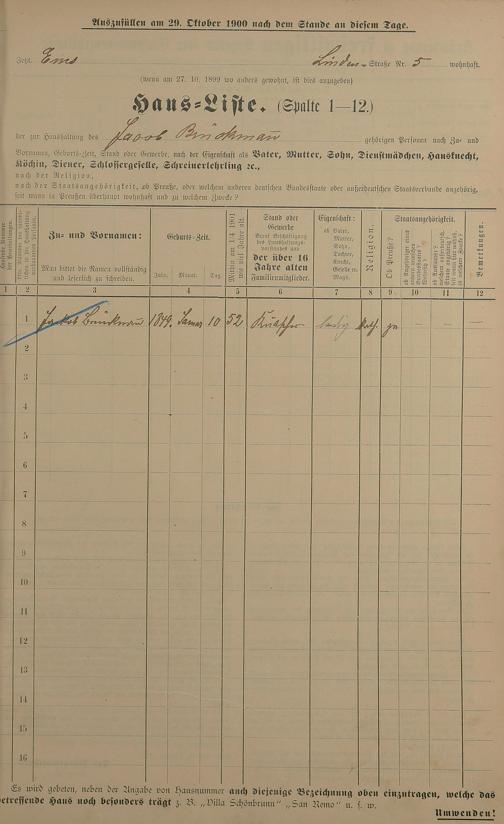 Auszufüllen am 29. Oktober 1900 nach dem Stande an diesem Tage.
Jetzt Ems Linden-Straße Nr. 5 wohnhaft.
(wenn am 27. 10. 1899 wo anders gewohnt, ist dies anzugeben)
Haus-Liste. (Spalte 1—12.)
der zur Haushaltung des Jacob Brückmann gehörigen Personen nach Zu- und
Vornamen, Geburts-Zeit, Stand oder Gewerbe, nach der Eigenschaft als Vater, Mutter, Sohn, Dienstmädchen, Hausknecht,
Köchin, Diener, Schlossergeselle, Schreinerlehrling ꝛc.,
nach der Religion,
nach der Staatsangehörigkeit, ob Preuße, oder welchem anderen deutschen Bundesstaate oder außerdeutschen Staatsverbande angehörig,
seit wann in Preußen überhaupt wohnhaft und zu welchem Zwecke?
Zu- und Vornamen:
Man bittet die Namen vollständig
und leserlich zu schreiben.
Geburts-Zeit.
Jahr. Monat. Tag.
Mithin am 1./4. 1901
wie viel Jahre alt.
Stand oder
Gewerbe
Beruf, Beschäftigung
des Haushaltungs-
vorstandes und
der über 16
Jahre alten
Familienmitglieder.
Eigenschaft:
ob Vater,
Mutter,
Sohn,
Tochter,
Knecht,
Geselle u.
Magd.
Religion.
Staatsangehörigkeit.
Ob Preuße?
Bemerkungen.
1 2 3 4 5 6 7 8 9 10 11 12
1 Jakob Brückmann 1849. Januar 10 52 ledig kath. ja — —
2
3
4
5
6
7
8
9
10
11
12
13
14
15
16
Es wird gebeten, neben der Angabe von Hausnummer auch diejenige Bezeichnung oben einzutragen, welche das
betreffende Haus noch besonders trägt z. B. „Villa Schönbrunn" „San Remo" u. s. w.
Umwenden!